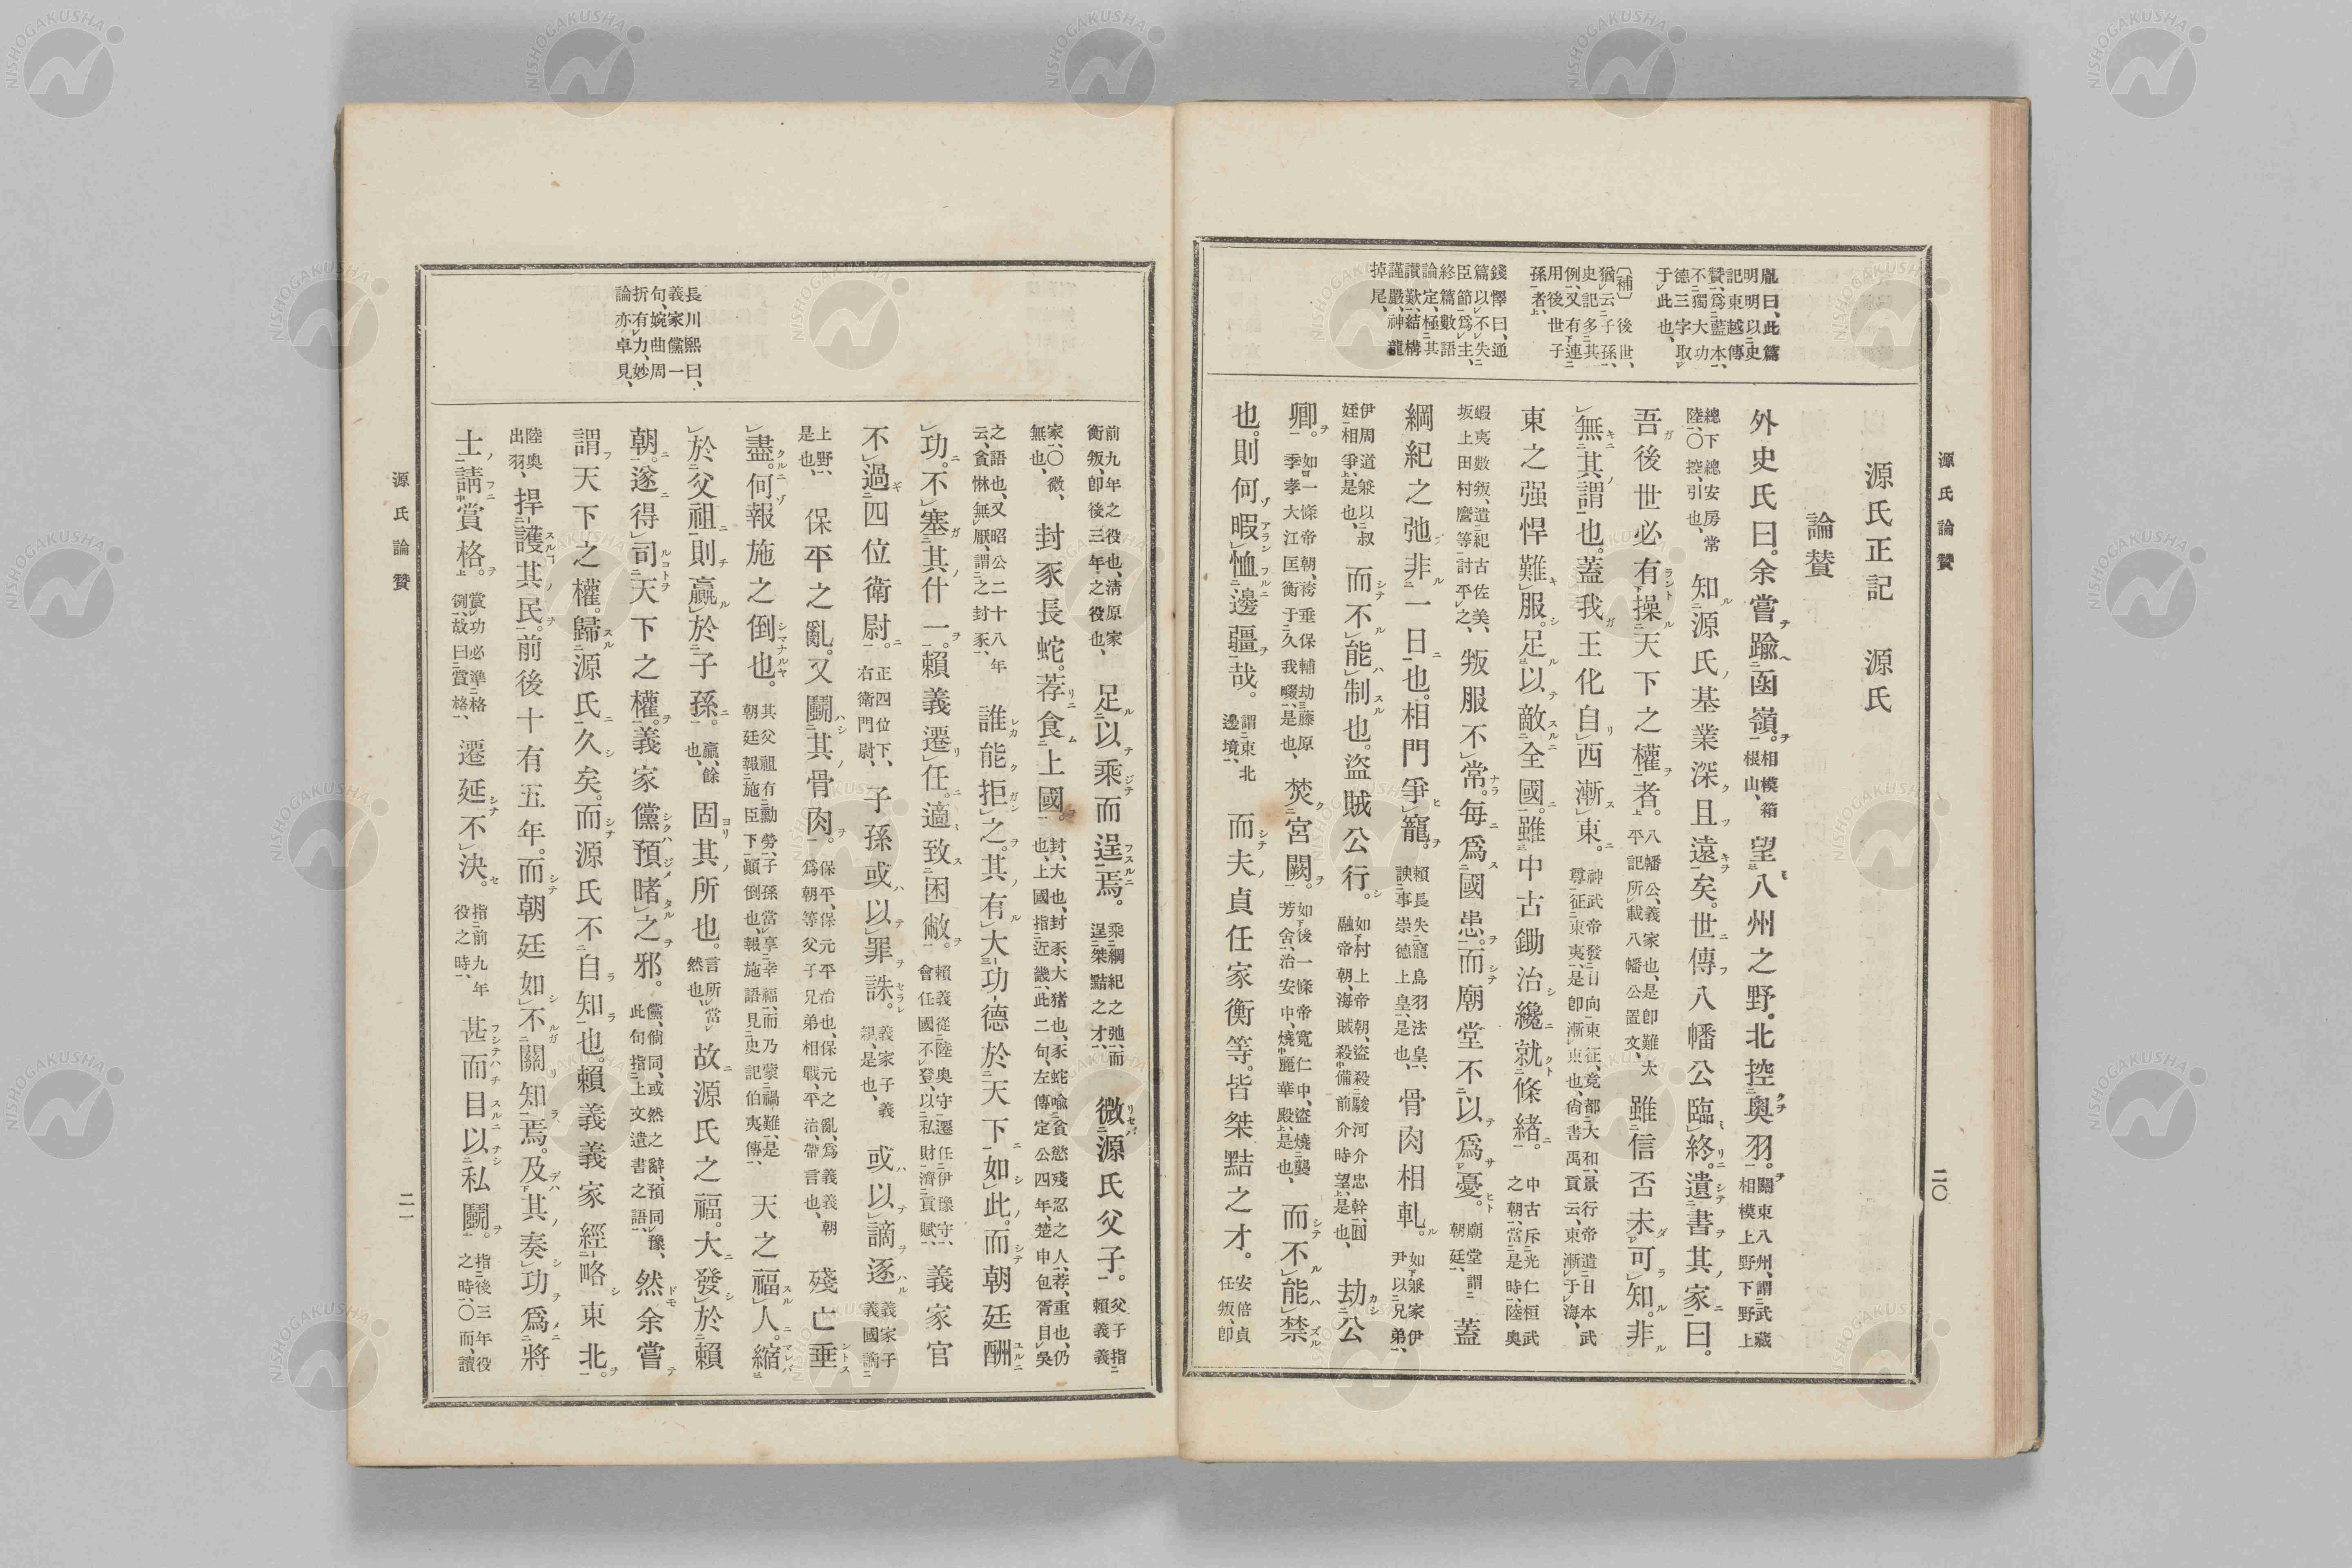 源氏論贊
二〇
胤曰、此篇
明明以史
記東越傳
贊、爲藍本、
不獨大功
德三字取
于此也、
〔補〕後世、
猶云子孫、
史記多其
例、又有連
用後世子
孫者、
錢懌曰、通
篇以不失
臣節爲主、
終篇數語
論定、極其
讃歎、結構
謹嚴、神龍
掉尾、
源氏正記　源氏
論贊
外史氏曰。余嘗踰函嶺。相模箱根山、望八州之野。北控奧羽。關東八州、謂武藏相模上野下野上
總下總安房常陸、〇控、引也、知源氏基業深且遠矣。世傳八幡公臨終。遺書其家曰。
吾後世必有操天下之權者。八幡公、義家也、是卽難太平記所載八幡公置文、雖信否未可知。非
無其謂也。蓋我王化自西漸東。神武帝發日向東征、竟都大和、景行帝遣日本武尊征東夷、是卽漸東也、尙書禹貢云、東漸于海、
東之强悍難服。足以敵全國。雖中古鋤治纔就條緒。中古斥光仁桓武之朝、當是時、陸奧
蝦夷數叛、遣紀古佐美、坂上田村麿等討平之、叛服不常。每爲國患。而廟堂不以爲憂。廟堂謂朝廷、蓋
綱紀之弛非一日也。相門爭寵。賴長失寵鳥羽法皇、諛事崇德上皇、是也、骨肉相軋。如兼家伊尹以兄弟、
伊周道兼以叔姪相爭、是也、而不能制也。盜賊公行。如村上帝朝、盜殺駿河介忠幹、圓融帝朝、海賊殺備前介時望、是也、劫公
卿。如一條帝朝、袴垂保輔劫藤原季孝大江匡衡于久我畷、是也、焚宮闕。如後一條帝寬仁中、盜燒襲芳舍、治安中、燒麗華殿、是也、而不能禁
也。則何暇恤邊疆哉。謂東北邊境、而夫貞任家衡等。皆桀黠之才。安倍貞任叛、卽
前九年之役也、淸原家衡叛、卽後三年之役也、足以乘而逞焉。乘綱紀之弛、而逞桀黠之才、微源氏父子。父子指賴義義
家、〇微、無也、封豕長蛇。荐食上國。封、大也、封豕、大猪也、豕蛇喩貪慾殘忍之人、荐、重也、仍也、上國指近畿、此二句、左傳定公四年、楚申包胥目吳
之語也、又昭公二十八年云、貪惏無厭、謂之封豕、誰能拒之。其有大功德於天下如此。而朝廷酬
功。不塞其什一。賴義遷任。適致困敝。賴義從陸奧守遷任伊豫守、會任國不登、以私財濟貢賦、義家官
不過四位衛尉。正四位下、右衛門尉、子孫或以罪誅。義家子義親、是也、或以謫逐。義家子義國謫
上野、是也、保平之亂。又鬪其骨肉。保平、保元平治也、保元之亂、爲義義朝爲朝等父子兄弟相戰、平治、帶言也、殘亡垂
盡。何報施之倒也。其父祖有勳勞、子孫當享幸福、而乃蒙禍難、是朝廷報施臣下顚倒也、報施語見史記伯夷傳、天之福人。縮
於父祖則贏於子孫。贏、餘也、固其所也。言所當然也、故源氏之福。大發於賴
朝。遂得司天下之權。義家儻預睹之邪。儻、倘同、或然之辭、預同豫、此句指上文遺書之語、然余嘗
謂天下之權。歸源氏久矣。而源氏不自知也。賴義義家經略東北。
陸奧出羽、捍護其民。前後十有五年。而朝廷如不關知焉。及其奏功爲將
士請賞格。賞功必準格例、故曰賞格、遷延不決。指前九年役之時、甚而目以私鬪。指後三年役之時、〇而、讀
長川熙曰、
義家儻一
句、婉曲周
折、有力、妙
論亦卓見、
源氏論贊
二一